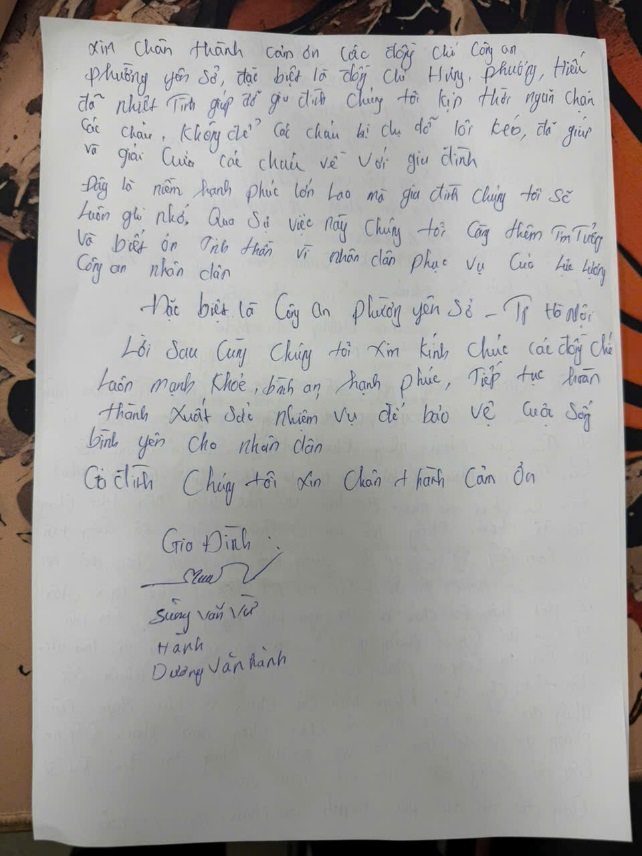 xin chân thành cảm ơn các đồng chí công an
phường yên sở, đặc biệt là đồng chí Hưng, phương, Hiếu
đã nhiệt Tình giúp đỡ gia đình chúng tôi kịp thời ngăn chặn
các cháu, không để các cháu bị dụ dỗ lôi kéo, đã giúp
và giải cứu các cháu về với gia đình
Đây là niềm hạnh phúc lớn lao mà gia đình chúng tôi sẽ
luôn ghi nhớ. Qua sự việc này chúng tôi càng thêm Tin Tưởng
Và biết ơn Tinh thần vì nhân dân phục vụ của lực lượng
Công an nhân dân
Đặc biệt là Công An phường yên sở - TP Hà Nội
Lời sau cùng chúng tôi xin kính chúc các đồng chí
luôn mạnh khoẻ, bình an, hạnh phúc, Tiếp tục hoàn
thành xuất sắc nhiệm vụ để bảo vệ cuộc sống
bình yên cho nhân dân
Gia đình chúng tôi xin chân thành cảm ơn
Gia Đình :
Sùng Văn Vừ
Hành
Dương Văn hành